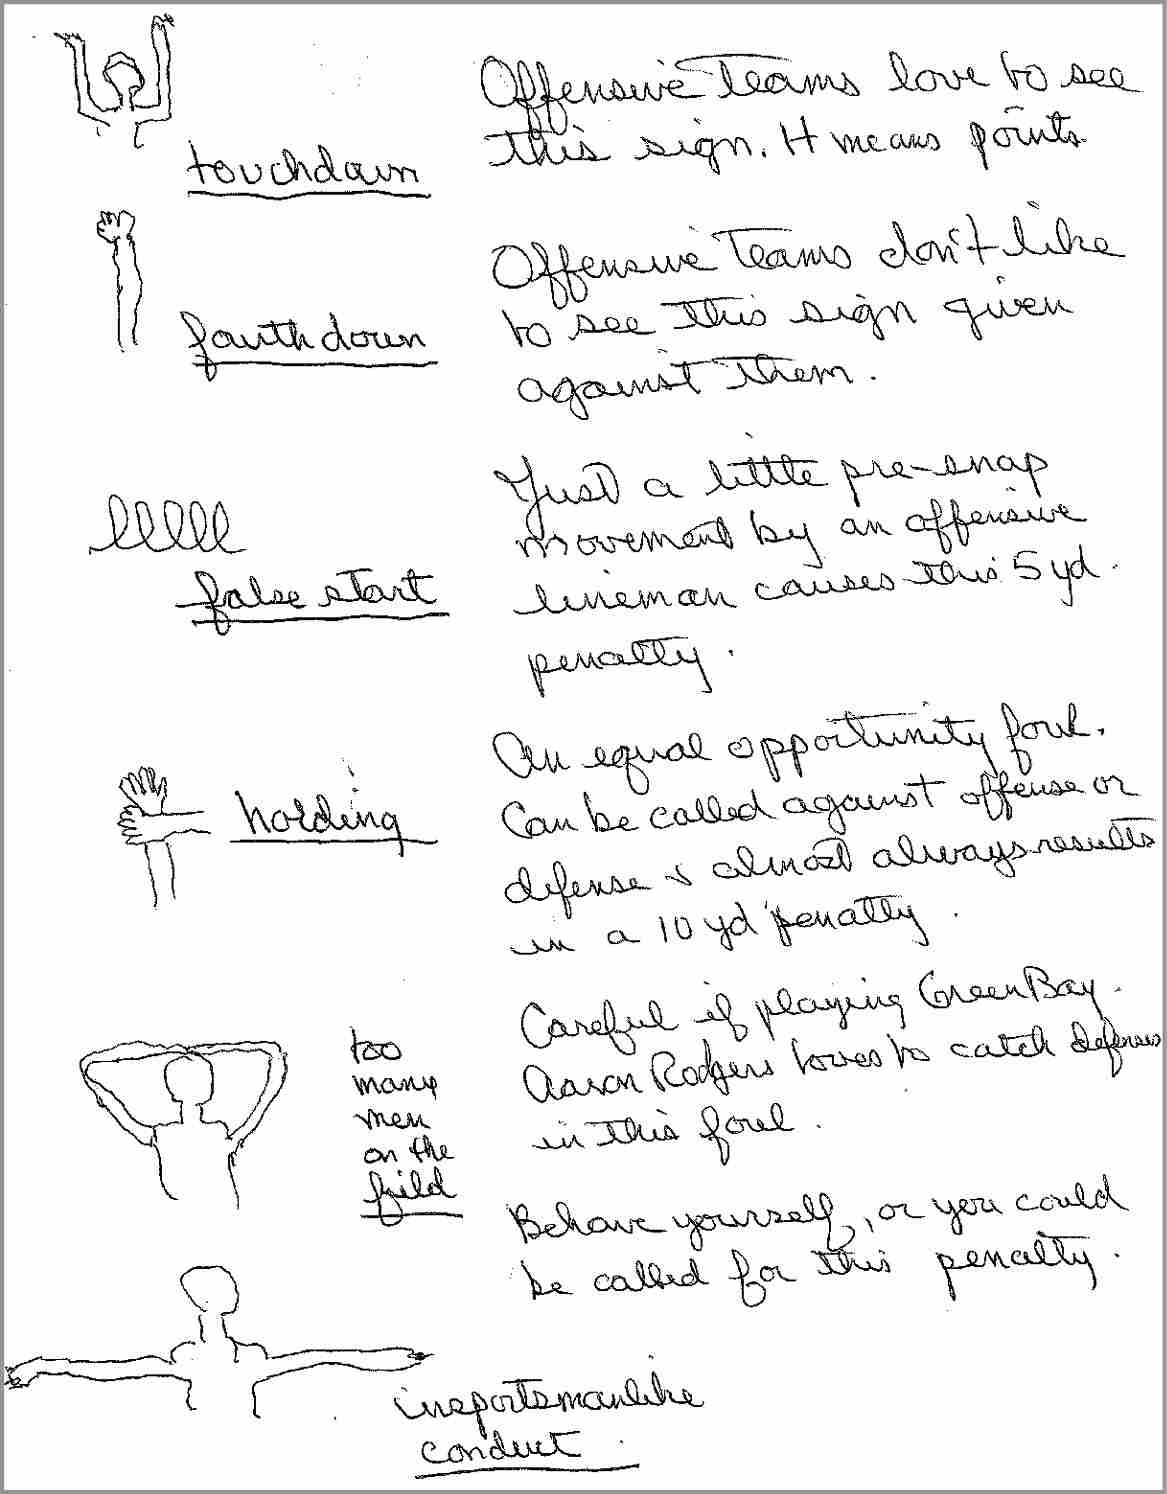 Offensive Teams love to see
this sign. It means points
touchdown
Offensive Teams don't like
to see this sign given
against them.
fourth down
Just a little pre-snap
movement by an offensive
lineman causes this 5 yd.
penalty.
false start
An equal opportunity foul.
Can be called against offense or
defense & almost always results
in a 10 yd penalty.
holding
Careful if playing Green Bay.
Aaron Rodgers loves to catch defenses
in this foul.
too
many
men
on the
field
Behave yourself, or you could
be called for this penalty.
unsportsmanlike
conduct